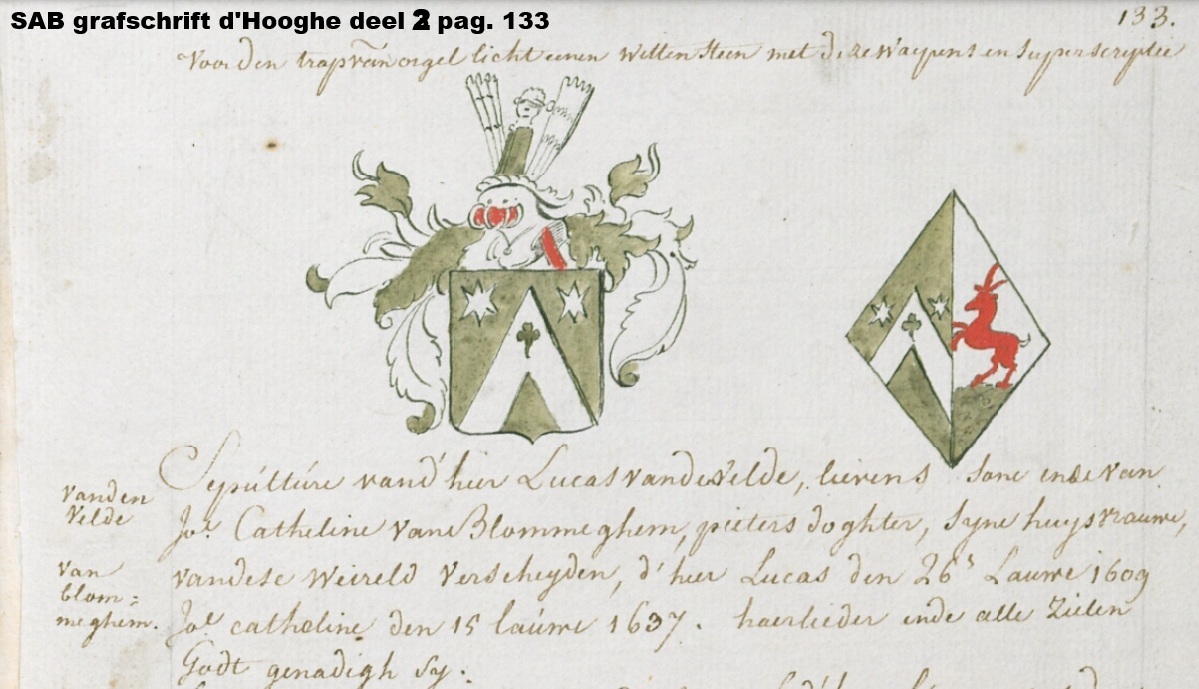 SAB grafschrift d'Hooghe deel 2 pag. 133
133.
Voor den trap van orgel licht eenen Witten Steen met dese Waepens en superscriptie
Sepúltúre vand' hier Lucas vande Velde, lievens sone ende van
Jo.e Catheline Van Blommeghem, pieters doghter, syne huysvrauwe,
vandese Weireld Verscheyden, d' hier Lucas den 26s Lauwe 1609
Jo.e catheline den 15 laúwe 1637. haerlieder ende alle Zielen
Godt genadigh sy.
vanden
Velde
van
blom=
meghem.